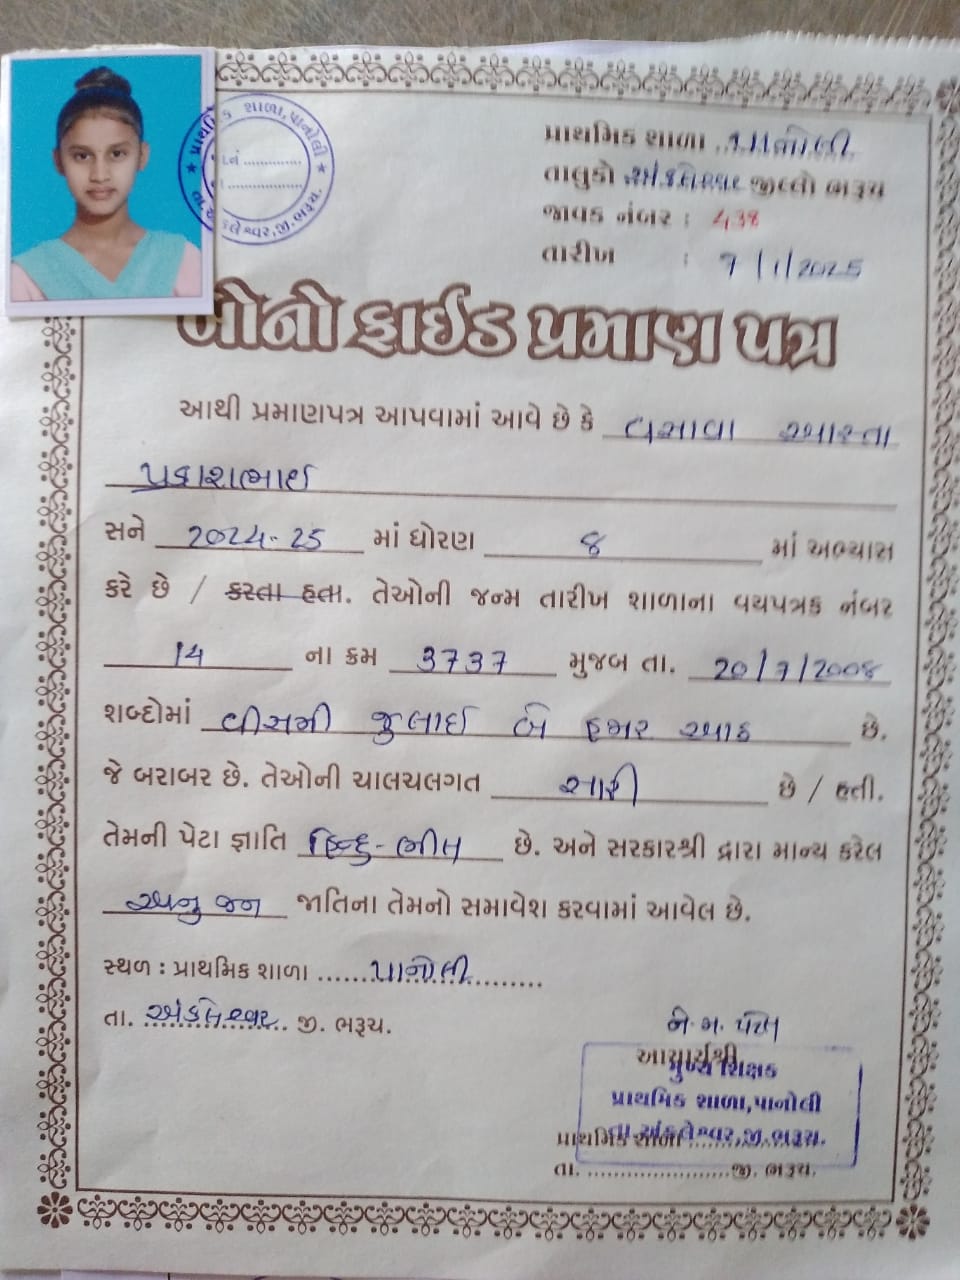 પ્રાથમિક શાળા, પાનોલી
તા. અંકલેશ્વર, જી. ભરૂચ.
પ્રાથમિક શાળા પાનોલી
તાલુકો અંકલેશ્વર જીલ્લો ભરૂચ
જાવક નંબર : 438
તારીખ : 7/1/2025
બોનોફાઈડ પ્રમાણ પત્ર
આથી પ્રમાણપત્ર આપવામાં આવે છે કે વસાવા આસ્તા
પ્રકાશભાઈ
સને 2024-25 માં ધોરણ 8 માં અભ્યાસ
કરે છે / કરતા હતા. તેઓની જન્મ તારીખ શાળાના વયપત્રક નંબર
14 ના ક્રમ 3737 મુજબ તા. 20/7/2008
શબ્દોમાં વીસમી જુલાઈ બે હજાર આઠ છે.
જે બરાબર છે. તેઓની ચાલચલગત સારી છે / હતી.
તેમની પેટા જ્ઞાતિ હિન્દુ-ભીલ છે. અને સરકારશ્રી દ્વારા માન્ય કરેલ
અનુ જન જાતિના તેમનો સમાવેશ કરવામાં આવેલ છે.
સ્થળ : પ્રાથમિક શાળા પાનોલી
તા. અંકલેશ્વર જી. ભરૂચ.
આચાર્યશ્રી
મુખ્ય શિક્ષક
પ્રાથમિક શાળા, પાનોલી
તા. અંકલેશ્વર, જી. ભરૂચ.
પ્રાથમિક શાળા
તા. ........................ જી. ભરૂચ.